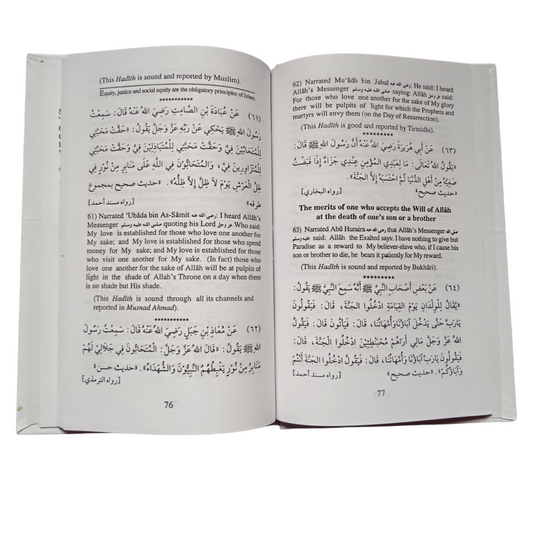 (This Hadîth is sound and reported by Muslim).
Equity, justice and social equity are the obligatory principles of Islam.
**********
(٦١) عَنْ عُبَادَةَ بْنِ الصَّامِتِ رَضِيَ اللهُ عَنْهُ قَالَ: سَمِعْتُ
رَسُولَ اللهِ ﷺ يَحْكِي عَنْ رَبِّهِ عَزَّ وَجَلَّ يَقُولُ: «حَقَّتْ مَحَبَّتِي
لِلْمُتَحَابِّينَ فِيَّ، وَحَقَّتْ مَحَبَّتِي لِلْمُتَبَاذِلِينَ فِيَّ، وَحَقَّتْ مَحَبَّتِي
لِلْمُتَزَاوِرِينَ فِيَّ، وَالْمُتَحَابُّونَ فِي اللهِ عَلَى مَنَابِرَ مِنْ نُورٍ فِي
ظِلِّ الْعَرْشِ يَوْمَ لَا ظِلَّ إِلَّا ظِلُّهُ». «حديث صحيح بمجموع
طرقه» [رواه مسند أحمد]
61) Narrated 'Ubâda bin As-Sâmit رضي الله عنه: I heard Allâh's
Messenger صلى الله عليه وسلم quoting his Lord عز وجل Who said:
My love is established for those who love one another for
My sake; and My love is established for those who spend
money for My sake; and My love is established for those
who visit one another for My sake. (In fact) those who
love one another for the sake of Allâh will be at pulpits of
light in the shade of Allah's Throne on a day when there
is no shade but His shade.
(This Hadîth is sound through all its channels and
reported in Musnad Ahmad).
**********
(٦٢) عَنْ مُعَاذِ بْنِ جَبَلٍ رَضِيَ اللهُ عَنْهُ قَالَ: سَمِعْتُ رَسُولَ
اللهِ ﷺ يَقُولُ: «قَالَ اللهُ عَزَّ وَجَلَّ: الْمُتَحَابُّونَ فِي جَلَالِي لَهُمْ
مَنَابِرُ مِنْ نُورٍ يَغْبِطُهُمُ النَّبِيُّونَ وَالشُّهَدَاءُ». «حديث حسن»
[رواه الترمذي]
76
62) Narrated Mu'âdh bin Jabal رضي الله عنه: He said: I heard
Allâh's Messenger صلى الله عليه وسلم saying: Allâh عز وجل said:
For those who love one another for the sake of My glory
there will be pulpits of light for which the Prophets and
martyrs will envy them (on the Day of Resurrection).
(This Hadîth is good and reported by Tirmidhi).
**********
(٦٣) عَنْ أَبِي هُرَيْرَةَ رَضِيَ اللهُ عَنْهُ أَنَّ رَسُولَ اللهِ ﷺ قَالَ:
«يَقُولُ اللهُ تَعَالَى: مَا لِعَبْدِي الْمُؤْمِنِ عِنْدِي جَزَاءٌ إِذَا قَبَضْتُ
صَفِيَّهُ مِنْ أَهْلِ الدُّنْيَا ثُمَّ احْتَسَبَهُ إِلَّا الْجَنَّةُ». «حديث صحيح»
[رواه البخاري]
The merits of one who accepts the Will of Allâh
at the death of one's son or a brother
63) Narrated Abû Huraira رضي الله عنه that Allâh's Messenger
صلى الله عليه وسلم said: Allâh the Exalted says: I have nothing to give but
Paradise as a reward to My believer-slave who, if I cause his
son or brother to die, he bears it patiently for My reward.
(This Hadîth is sound and reported by Bukhâri).
(٦٤) عَنْ بَعْضِ أَصْحَابِ النَّبِيِّ ﷺ أَنَّهُ سَمِعَ النَّبِيَّ ﷺ يَقُولُ:
«يُقَالُ لِلْوِلْدَانِ يَوْمَ الْقِيَامَةِ ادْخُلُوا الْجَنَّةَ، قَالَ: فَيَقُولُونَ
يَارَبِّ حَتَّى يَدْخُلَ آبَاؤُنَا وَأُمَّهَاتُنَا، قَالَ: فَيَأْتُونَ قَالَ: فَيَقُولُ
اللهُ عَزَّ وَجَلَّ مَالِي أَرَاهُمْ مُحْبَنْطِئِينَ ادْخُلُوا الْجَنَّةَ، قَالَ:
فَيَقُولُونَ يَارَبِّ آبَاؤُنَا وَأُمَّهَاتُنَا، قَالَ: فَيَقُولُ ادْخُلُوا الْجَنَّةَ أَنْتُمْ
وَآبَاؤُكُمْ». «حديث صحيح» [رواه مسند أحمد]
77